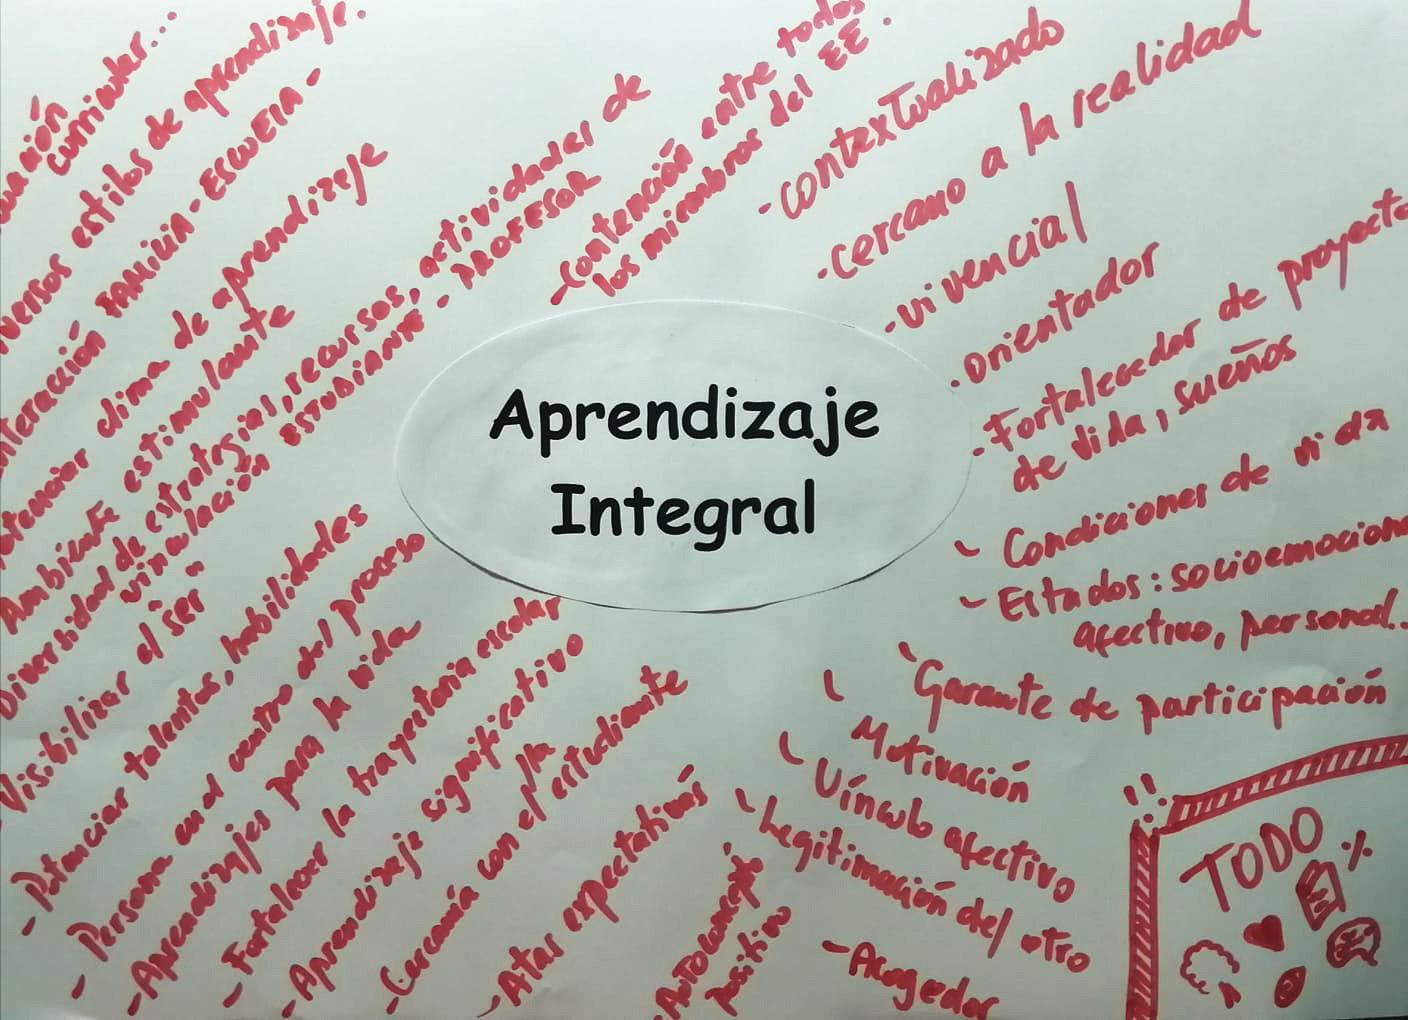 curricular...
estilos de aprendizaje.
FAMILIA - ESCUELA -
clima de aprendizaje
Ambiente estimulante
Diversidad de estrategias, recursos, actividades de
vinculación ESTUDIANTE - PROFESOR
Visibilizar el ser"
- Potenciar talentos, habilidades
- Persona en el centro del proceso
- Aprendizajes para la vida
- Fortalecer la trayectoria escolar
- Aprendizaje significativo
- Cercanía con el/la estudiante
- Altas expectativas
- Autoconcepto
positivo
- Contención entre todos
los miembros del EE.
- contextualizado
- cercano a la realidad
- vivencial
- orientador
- Fortalecedor de proyecto
de vida, sueños
- Condiciones de vida
- Estados: socioemocional
afectivo, personal..
- Garante de participación
- Motivación
- Vínculo afectivo
- Legitimación del otro
- Acogedor
Aprendizaje
Integral
TODO